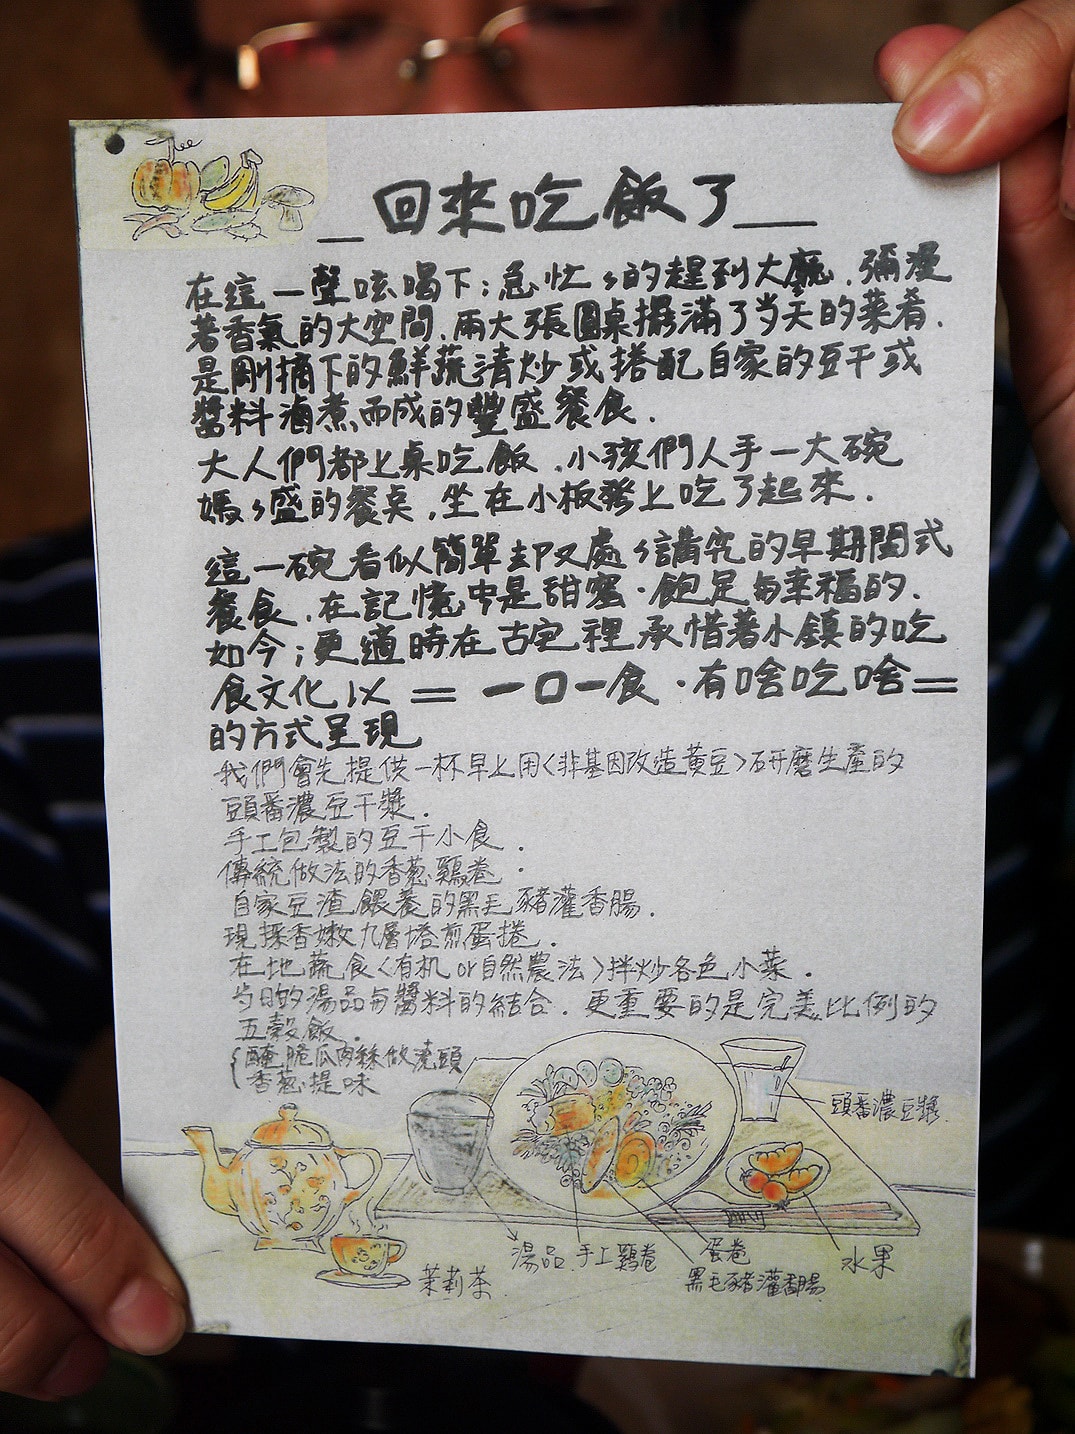 回來吃飯了
在這一聲吆喝下；急忙々的趕到大廳．彌漫
著香氣的大空間．兩大張圓桌擺滿了當天的菜肴．
是剛摘下的鮮蔬清炒或搭配自家的豆干或
醬料滷煮而成的豐盛餐食．
大人們都上桌吃飯．小孩們人手一大碗
媽々盛的餐桌．坐在小板凳上吃了起來．
這一碗看似簡單却又處々講究的早期閩式
餐食．在記憶中是甜蜜．飽足与幸福的．
如今；更適時在古宅裡承惜著小鎮的吃
食文化以＝一口一食．有啥吃啥＝
的方式呈現
我們會先提供一杯早上用<非基因改造黃豆>研磨生產的
頭番濃豆干漿．
手工包製的豆干小食．
傳統做法的香蔥雞卷．
自家豆渣餵養的黑毛豬灌香腸．
現採香嫩九層塔煎蛋捲．
在地蔬食<有机or自然農法>拌炒各色小菜．
当日的湯品与醬料的結合．更重要的是完美比例的
五穀飯．
醃脆瓜肉絲做澆頭
香蔥提味
頭番濃豆漿
湯品
手工雞卷
蛋卷
黑毛豬灌香腸
水果
茉莉茶